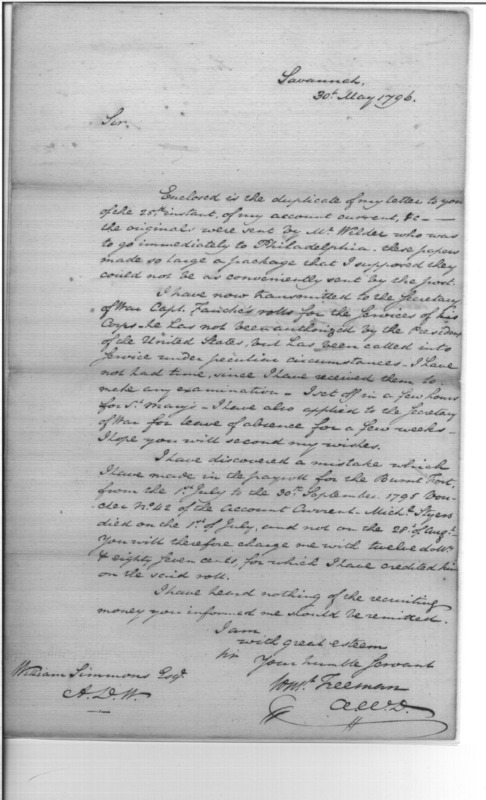 Savannah.
30th May 1796.
Sir.
Enclosed is the duplicate of my letter to you
of the 25th instant, of my account current, &c —
the originals were sent by Mr. Wilder who was
to go immediately to Philadelphia. these papers
made so large a package that I supposed they
could not be as conveniently sent by the post.
I have now transmitted to the Secretary
of War Capt. Fauche's rolls for the services of his
Corps - he has not been authorized by the President
of the United States, but has been called into
service under peculiar circumstances - I have
not had time, since I have received them to
make any examination - I set off in a few hours
for St. Mary's - I have also applied to the Secretary
of War for leave of absence for a few weeks -
I hope you will second my wishes.
I have discovered a mistake which
I have made in the payroll for the Burnt Fort,
from the 1st July to the 30th September 1795 Vou-
cher No. 42 of the Account Current. Michl. Styers
died on the 1st of July, and not on the 28th of Augt.
You will therefore charge me with twelve dollrs.
& eighty seven cents, for which I have credited him
on the said roll.
I have heard nothing of the recruiting
money you informed me should be remitted.
I am
with great esteem
Sir Your humble Servant
Const. Freeman
A.W.D.
William Simmons Esqr.
A.D.W.